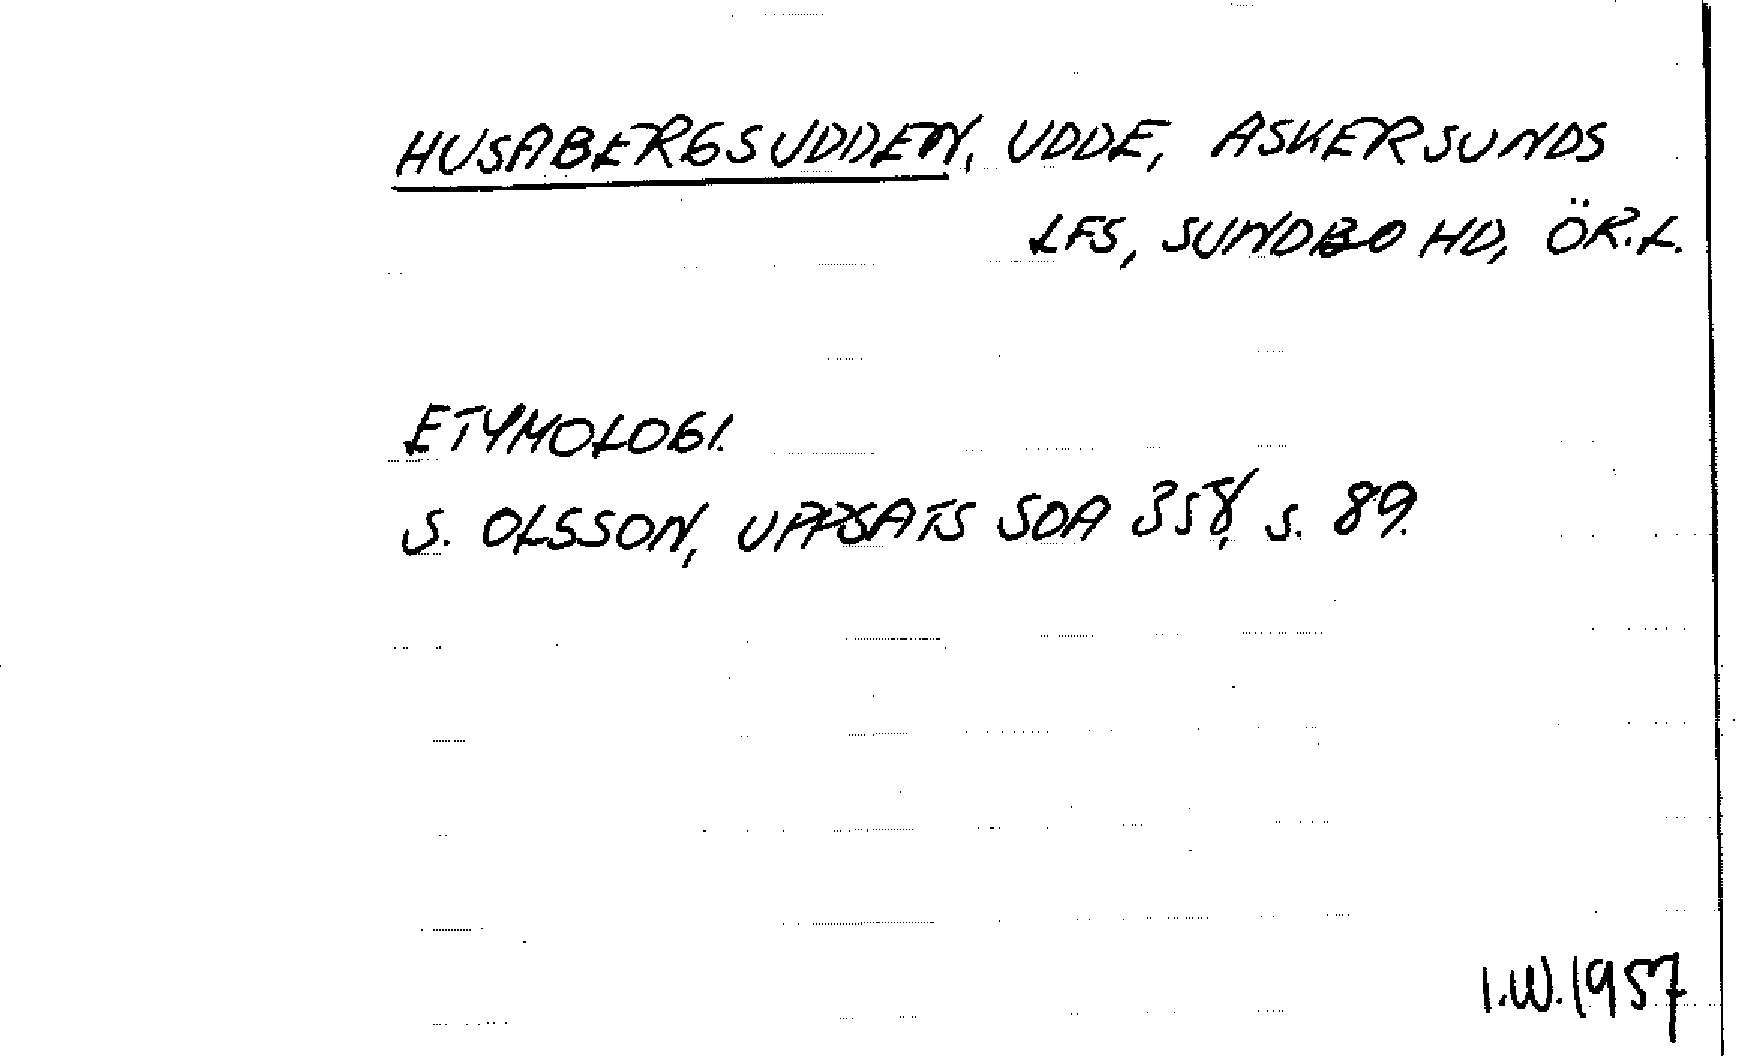 HUSABERGSUDDEN, UDDE, ASKERSUNDS
LFS, SUNDBO HD, ÖR.L.
ETYMOLOGI.
S. OLSSON, UPPSATS SOA 358, s. 89.
I.W. 1957